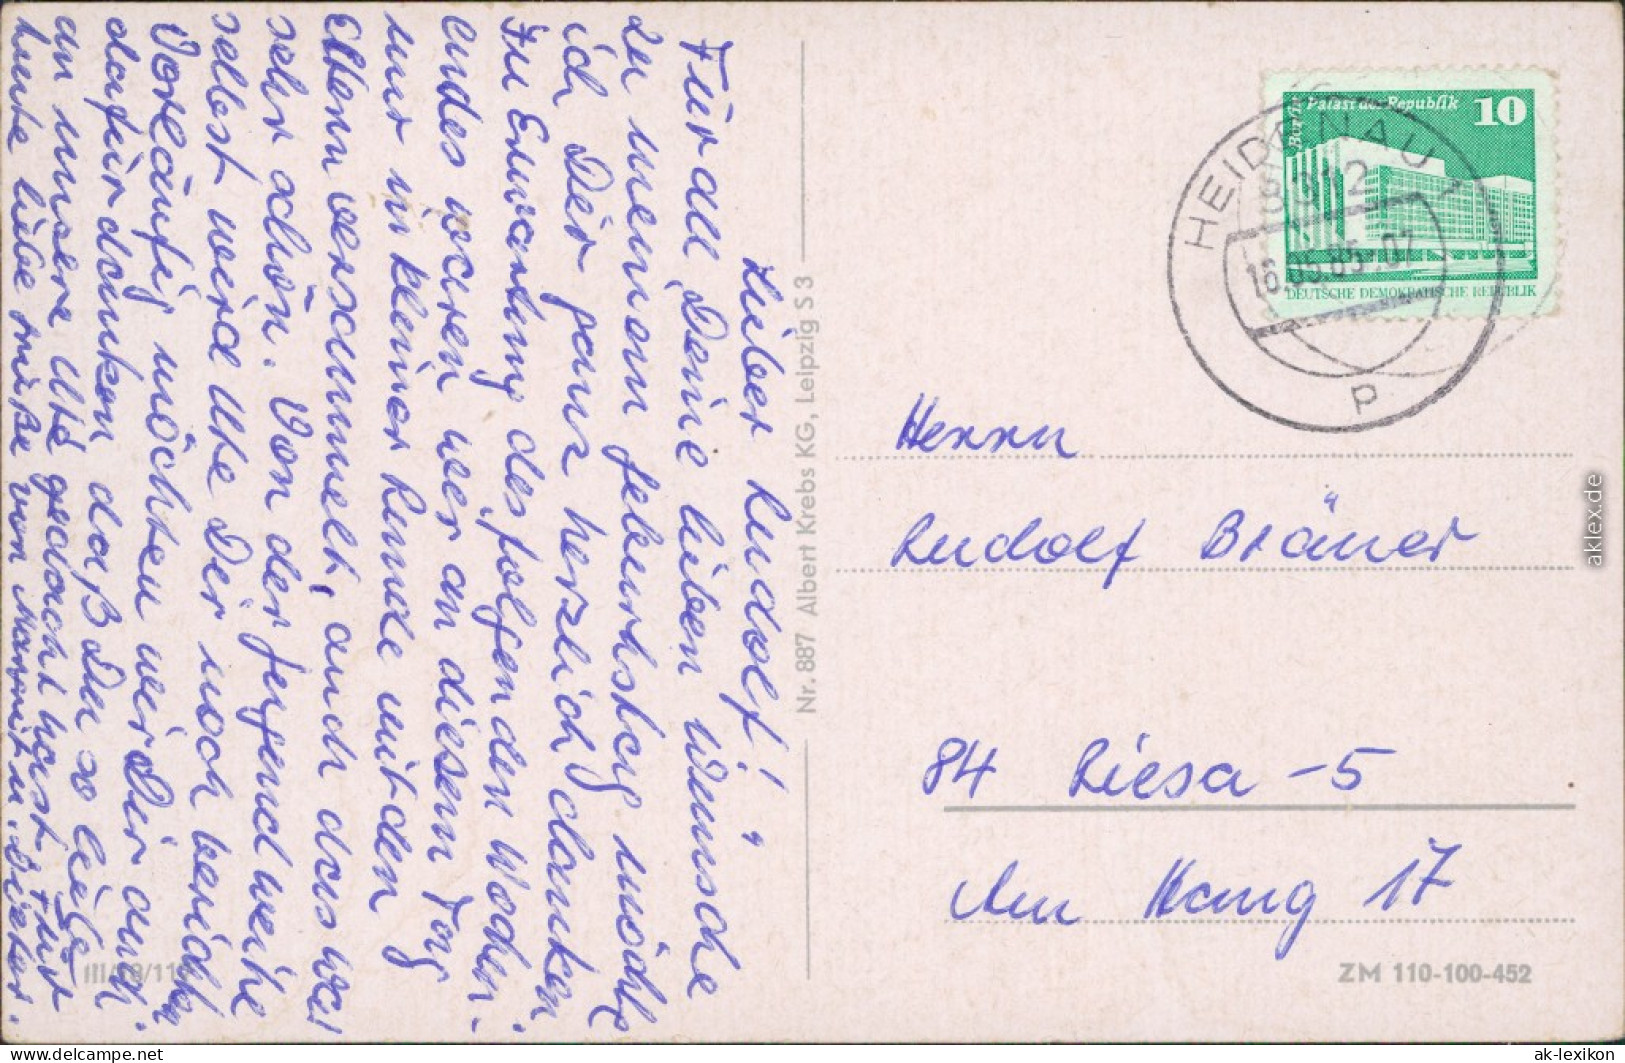 Lieber Rudolf!
Für all Deine lieben Wünsche
zu meinem Geburtstag möchte
ich Dir ganz herzlich danken.
In Erwartung des folgenden Wochen-
endes waren wir an diesem Tag
nur in kleiner Runde mit den
Eltern versammelt, auch das war
sehr schön. Von der Jugendweihe
selbst wird Ute Dir noch berichten
Vorläufig möchten wir Dir auch
dafür danken daß Du so lieb
an unsere Ute gedacht hast. Für
heute liebe Grüße von Marrit u. Dieter.
Nr. 887 Albert Krebs KG, Leipzig S 3
III/18/11
Berlin
Palast der Republik
10
DEUTSCHE DEMOKRATISCHE REPUBLIK
HEIDENAU 1
8312
16.05.85-07
P
Herrn
Rudolf Bräuer
84 Riesa -5
Am Hang 17
ZM 110-100-452
aklex.de
www.delcampe.net
ak-lexikon